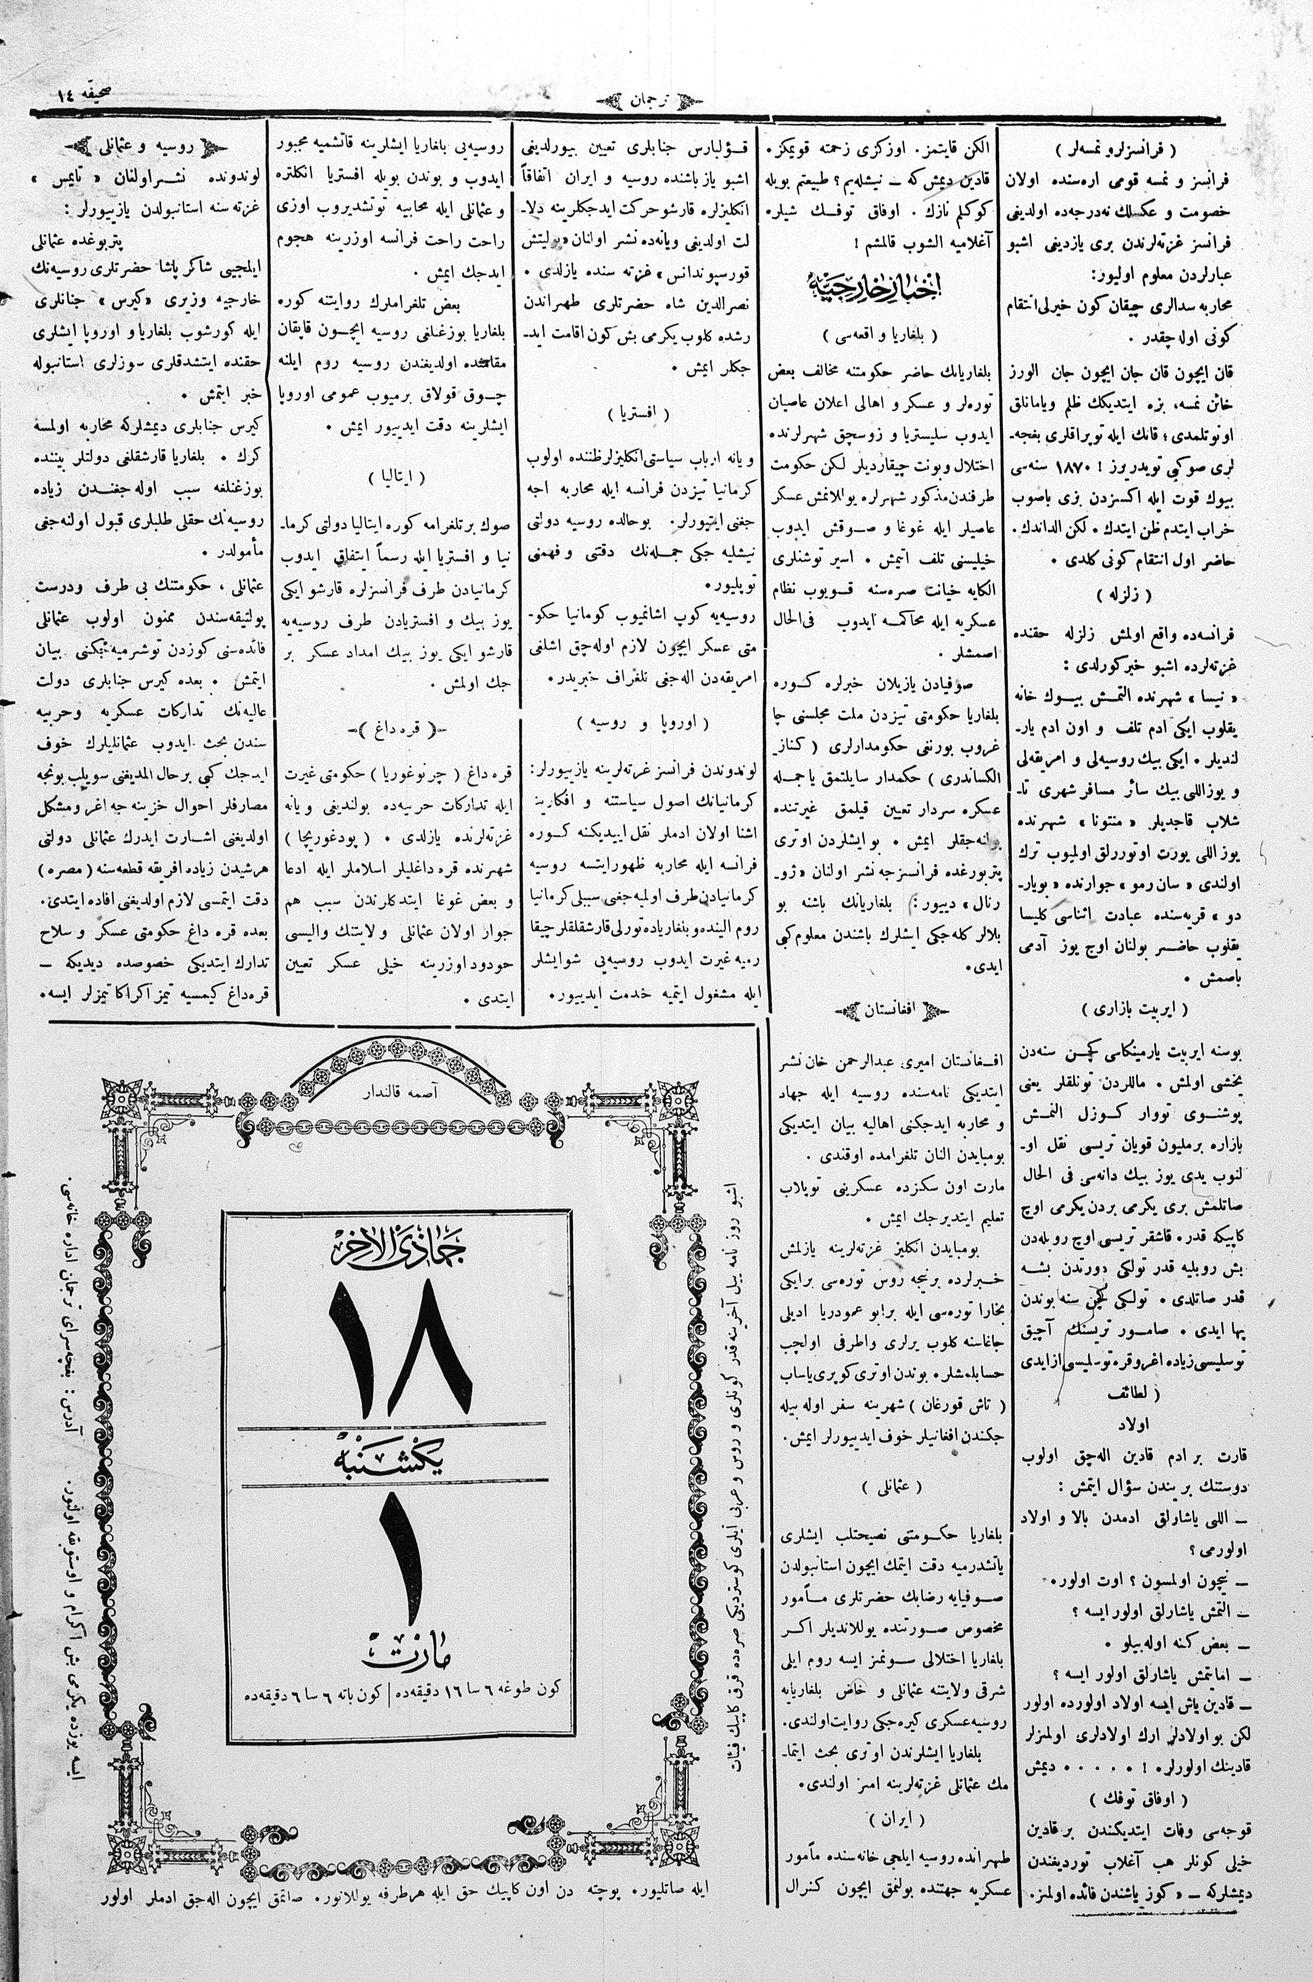 ترجمان
صحیفه ١٤
( فرانسزلر و نمسه‌لر )
فرانسز و نمسه قومی اره‌سنده اولان
خصومت و عکسلك نه‌درجه‌ده اولدیغی
فرانسز غزته‌لرندن بری یازدیغی اشبو
عبارلردن معلوم اولیور:
محاربه سدالری چیقان کون خیرلی انتقام
کونی اوله جقدر ٠
قان ایچون قان جان ایچون جان الورز
خائن نمسه، بزه ایتدیکك ظلم ویامانلق
اونوتلمدی؛ قانك ایله توپراقلری بغجه‌ـ
لری صوکبی تویدریوز ! ١٨٧٠ سنه‌سی
بیوك قوت ایله اکسزدن بزی باصوب
خراب ایتدم ظن ایتدك ٠ لکن الداندك ٠
حاضر اول انتقام کونی کلدی ٠
( زلزله )
فرانسه‌ده واقع اولمش زلزله حقنده
غزته‌لرده اشبو خبرکورلدی :
« نیسا » شهرنده التمش بیوك خانه
یقلوب ایکی ادم تلف و اون ادم یارـ
لندیلر ٠ ایکی بیك روسیه‌لی و امریقه‌لی
و یوزاللی بیك سائر مسافر شهری تاـ
شلاب قاچدیلر « منتونا » شهرنده
یوز اللی یورت اوتوررلق اولمیوب ترك
اولندی « سان رمو » جوارنده « بویارـ
دو » قریه‌سنده عبادت اثناسی کلیسا
یقلوب حاضر بولنان اوچ یوز آدمی
باصمش ٠
( ایربیت بازاری )
بوسنه ایربیت یارمینکاسی کچن سنه‌دن
یخشی اولمش ٠ ماللردن تونلقلر یعنی
پوشنوی تووار کوزل التمش
بازاره برملیون قویان تریسی نقل اوـ
لنوب یدی یوز بیك دانه‌سی فی الحال
صاتلمش بری یکرمی بردن یکرمی اوچ
کاپیکه قدر ٠ قاشقر تریسی اوچ روبله‌دن
بش روبلیه قدر تولکی دورتدن بشه
قدر صاتلدی ٠ تولکی کچن سنه بوندن
بها ایدی ٠ صامور تریسنك آچیق
توسلیسی زیاده اغر وقره توسلیسی ازایدی
( لطائف
اولاد
قارت بر ادم قادین اله‌جق اولوب
دوستنك بریندن سؤال ایتمش :
ـ اللی یاشارلق ادمدن بالا و اولاد
اولورمی ؟
ـ نیچون اولمسون ؟ اوت اولور ٠
ـ التمش یاشارلق اولور ایسه ؟
ـ بعض کنه اوله بیلو ٠
ـ اما یتمش یاشارلق اولور ایسه ؟
ـ قادین یاش ایسه اولاد اولورده اولور
لکن بو اولادلر ارك اولادلری اولمزلر
قادینك اولورلر ٠ ! ٠ ٠ ٠ ٠ ٠ دیمش
( اوفاق توفك )
قوجه‌سی وفات ایتدیکندن بر قادین
خیلی کونلر هب آغلاب توردیغندن
دیمشلرکه ـ « کوز یاشندن فائده اولمز ٠
الکن قایتمز ٠ اوزکزی زحمته قویمکز ٠
قادین دیمش که ـ نیشله‌یم ؟ طبیعتم بویله
کوکلم نازك ٠ اوفاق توفك شیلره
آغلامیه الشوب قالمشم !
اخبار خارجیه
( بلغاریا واقعه‌سی )
بلغاریانك حاضر حکومتنه مخالف بعض
توره‌لر و عسکر و اهالی اعلان عاصیان
ایدوب سلیستریا و زوسچق شهرلرنده
اختلال و بونت چیقاردیلر لکن حکومت
طرفندن مذکور شهرلره یوللانمش عسکر
عاصیلر ایله غوغا و صوقش ایدوب
خیلیسنی تلف اتیمش ٠ اسیر توشنلری
الکایه خیانت صره‌سنه قویوب نظام
عسکریه ایله محاکمه ایدوب فی‌الحال
اصمشلر ٠
صوفیادن یازیلان خبرلره کوره
بلغاریا حکومتی تیزدن ملت مجلسنی چاـ
غروب بورنغی حکومدارلری ( کنازـ
الکساندری ) حکمدار سایلتمق یا جمله
عسکره سردار تعیین قیلمق غیرتنده
بولنه‌جقلر ایمش ٠ بو ایشلردن اوتری
پتربورغده فرانسزجه نشر اولنان « ژوـ
رنال » دییور: بلغاریانك باشنه بو
بلالر کله‌جکی ایشلرك باشندن معلوم کبی
ایدی ٠
افغانستان
افغانستان امیری عبدالرحمن خان نشر
ایتدیکی نامه‌سنده روسیه ایله جهاد
و محاربه ایدجکنی اهالیه بیان ایتدیکی
بومبایدن النان تلغرامده اوقندی ٠
مارت اون سکزده عسکرینی تویلاب
تعلیم ایتدیرجك ایمش ٠
بومبایدن انکلیز غزته‌لرینه یازلمش
خبرلرده برنیجه روس توره‌سی برایکی
بخارا توره‌سی ایله برابو عمودریا ادیلی
جاغاسنه کلوب یرلری واطرفی اولچب
حسابله‌مشلر ٠ بوندن اوتری کوپری یاساب
( تاش قورغان ) شهرینه سفر اوله بیله
جکندن افغانیلر خوف ایدییورلر ایمش ٠
( عثمانلی )
بلغاریا حکومتی نصیحتلب ایشلری
یاتشدرمیه دقت ایتمك ایچون استانبولدن
صوفیایه رضابك حضرتلری مأمور
مخصوص صورتنده یوللاندیلر اکر
بلغاریا اختلالی سونمز ایسه روم ایلی
شرقی ولایتنه عثمانلی و خاص بلغاریایه
روسیه عسکری کیره‌جکی روایت اولندی ٠
بلغاریا ایشلرندن اوتری بحث ایتماـ
مك عثمانلی غزته‌لرینه امر اولندی ٠
( ایران )
طهرانده روسیه ایلجی خانه‌سنده مأمور
عسکریه جهتنده بولنمق ایچون کنرال
قولبارس جنابلری تعیین بیورلدیغی
اشبو یاز باشنده روسیه و ایران اتفاقاً
انکلیزلره قارشو حرکت ایدجکلرینه دلاـ
لت اولدیغی ویانه‌ده نشر اولنان « پولیتش
قورسپوندانس » غزته سنده یازلدی ٠
نصرالدین شاه حضرتلری طهراندن
رشده کلوب یکرمی بش کون اقامت ایدـ
جکلر ایمش ٠
( افستریا )
ویانه ارباب سیاستی انکلیزلر ظننده اولوب
کرمانیا تیزدن فرانسه ایله محاربه اجه
جغنی ایتیورلر. بو حالده روسیه دولتی
نیشلیه جکی جمله‌نك دقتنی و فهمنی
توپلیور ٠
روسیه‌یه کوپ اشانمیوب کومانیا حکوـ
متی عسکر ایچون لازم اوله‌جق اشلغی
امریقه‌دن اله‌جغی تلغراف خبریدر ٠
( اوروپا و روسیه )
لوندوندن فرانسز غزته‌لرینه یازییورلر:
کرمانیانك اصول سیاستنه و افکارینه
اشنا اولان ادملر نقل ایبدیکنه کوره
فرانسه ایله محاربه ظهور ایتسه روسیه
کرمانیادن طرف اولمیه جغی سببلی کرمانیا
روم الینده و بلغاریاده تورلی قارشقلقلر چیقا
رمیه غیرت ایدوب روسیه‌یی شوایشلر
ایله مشغول ایتمیه خدمت ایدییور ٠
روسیه‌یی بلغاریا ایشلرینه قاتشمیه مجبور
ایدوب و بوندن بویله افستریا انکلتره
و عثمانلی ایله محابیه توتشدیروب اوزی
راحت راحت فرانسه اوزرینه هجوم
ایدجك ایمش ٠
بعض تلغراملرك روایتنه کوره
بلغاریا بوزغنلغی روسیه ایچون قاپقان
مقامنده اولدیغندن روسیه روم ایلنه
چوق قولاق برمیوب عمومی اوروپا
ایشلرینه دقت ایدییور ایمش ٠
( ایتالیا )
صوك برتلغرامه کوره ایتالیا دولتی کرماـ
نیا و افستریا ایله رسماً ایتفاق ایدوب
کرمانیادن طرف فرانسزلره قارشو ایکی
یوز بیك و افستریادن طرف روسیه‌یه
قارشو ایکی یوز بیك امداد عسکر بر
جك اولمش ٠
( قره داغ )
قره داغ ( چرنوغوریا ) حکومتی غیرت
ایله تدارکات حربیه‌ده بولندیغی ویانه
غزته‌لرنده یازلدی ٠ ( پودغوریچا )
شهرنده قره داغلیلر اسلاملر ایله ادعا
و بعض غوغا ایتدکلرندن سبب هم
جوار اولان عثمانلی ولایتنك والیسی
حودود اوزرینه خیلی عسکر تعیین
ایتدی ٠
روسیه و عثمانلی
لوندونده نشر اولنان « تایمس »
غزته سنه استانبولدن یازییورلر :
پتربوغده عثمانلی
ایلچیی شاکر پاشا حضرتلری روسیه‌نك
خارجیه وزیری « کیرس » جنابلری
ایله کورشوب بلغاریا و اوروپا ایشلری
حقنده ایتشدقلری سوزلری استانبوله
خبر ایتمش ٠
کیرس جنابلری دیمشلرکه محاربه اولمسه
کرك ٠ بلغاریا قارشقلغی دولتلر بیننده
بوزغنلغه سبب اوله جغندن زیاده
روسیه‌نك حقلی طلبلری قبول اولنه‌جغی
مأمولدر ٠
عثمانلی، حکومتنك بی طرف ودرست
پولتیقه‌سندن ممنون اولوب عثمانلی
فائده‌سنی کوزدن توشرمیه‌جکنی بیان
ایتمش ٠ بعده کیرس جنابلری دولت
عالیه‌نك تدارکات عسکریه و حربیه
سندن بحث ایدوب عثمانلیلرك خوف
ایدجك کبی برحال المدیغنی سویلب بونجه
مصارفلر احوال خزینه جه اغر و مشکل
اولدیغنی اشارت ایدرك عثمانلی دولتی
هرشیدن زیاده افریقه قطعه‌سنه ( مصره )
دقت ایتمسی لازم اولدیغنی افاده ایتدی ٠
بعده قره داغ حکومتی عسکر و سلاح
تدارك ایتدیکی خصوصده دیدیکه ـ
قره‌داغ کیمسیه تیمز اکراکا تیمزلر ایسه ٠
آصمه قالندار
جماذی الاخر
١٨
یکشنبه
١
مارت
کون طوغه ٦ سا ١٦ دقیقه‌ده | کون باته ٦ سا ٦ دقیقه‌ده
اشبو روز نامه ییل آخرینه قدر کونلری و روس و عربی ایلری کوستردیکی صره‌ده قرق کاپیك فیئات
ایله صاتلیور. پوچته دن اون کاپیك حق ایله هرطرفه یوللانور. صاتمق ایچون اله‌جق ادملر اولور
ایسه یوزده یکرمی بش اکرام و اوستوپقه اولنور. آدرس : بغچه‌سرای ترجمان اداره خانه‌سی.